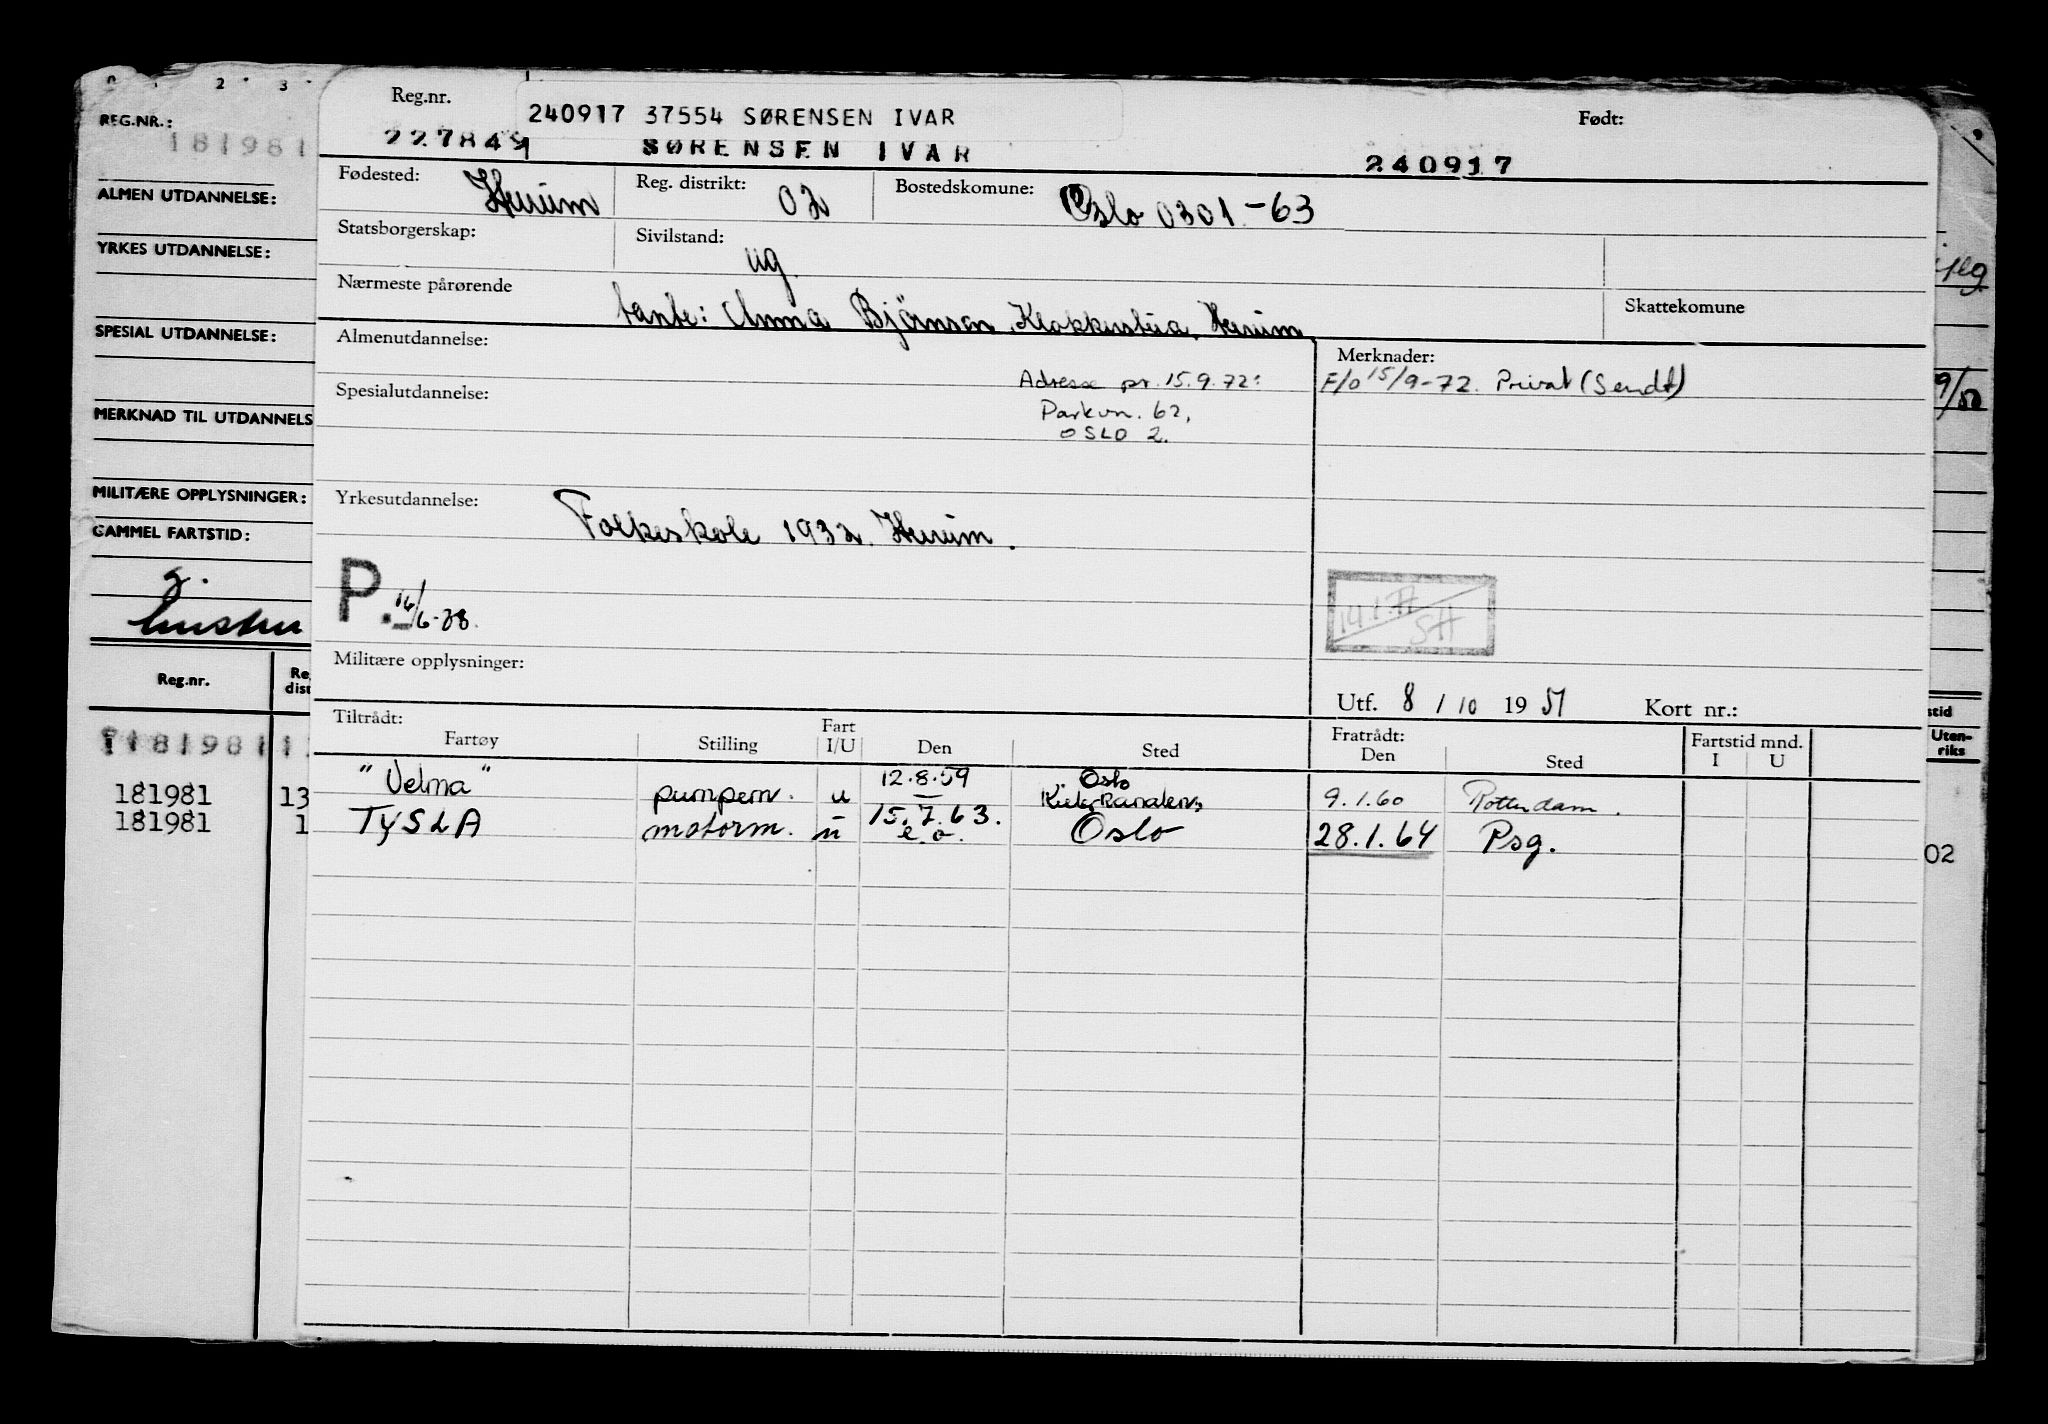 2 3
REG.NR.:
181981
ALMEN UTDANNELSE:
YRKES UTDANNELSE:
SPESIAL UTDANNELSE:
MERKNAD TIL UTDANNELS
MILITÆRE OPPLYSNINGER:
GAMMEL FARTSTID:
Reg.nr. Re
dist
181981
181981 13
181981 1
Reg.nr. 240917 37554 SØRENSEN IVAR Født:
227849 SØRENSEN IVAR 240917
Fødested: Hurum Reg. distrikt: 02 Bostedskomune: Oslo 0301-63
Statsborgerskap: Sivilstand: ug.
Nærmeste pårørende tante: Anna Bjørnsen, Klokkustua, Hurum Skattekomune
Almenutdannelse: Merknader:
Adresse pr. 15.9.72: F/o 15/9-72. Privat (Sendt)
Spesialutdannelse: Parkvn. 62,
OSLO 2.
Yrkesutdannelse: Folkeskole 1932. Hurum.
P. 16/6-78.
14.1.77
SH
Militære opplysninger:
Utf. 8 / 10 19 51 Kort nr.:
Tiltrådt: Fartøy Stilling Fart I/U Den Sted Fratrådt: Den Sted Fartstid mnd. I U
"Velma" pumpem. u 12.8.59 Oslo 9.1.60 Rotterdam.
Kielerkanalen
TYSLA motorm. u 15.7.63. Oslo 28.1.64 Psg.
e.o.
9/52
stid
Uten-
riks
02